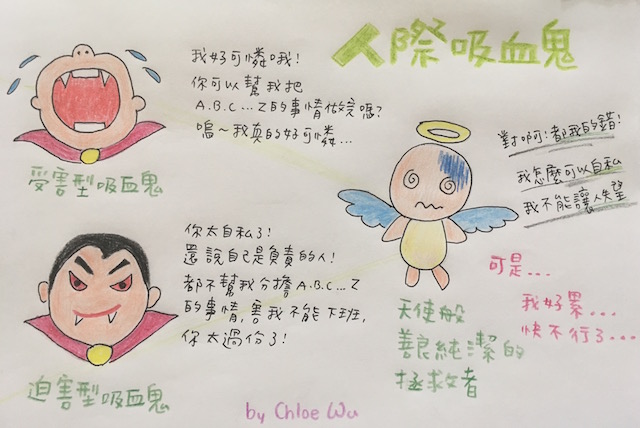 人際吸血鬼
我好可憐哦!
你可以幫我把
A.B.C...Z的事情做完嗎?
嗚~我真的好可憐...
受害型吸血鬼
你太自私了!
還說自己是負責的人!
都不幫我分擔A.B.C...Z
的事情,害我不能下班,
你太過份了!
迫害型吸血鬼
對啊!都我的錯!
我怎麼可以自私
我不能讓人失望
可是...
我好累...
快不行了...
天使般
善良純潔的
拯救者
by Chloe Wu